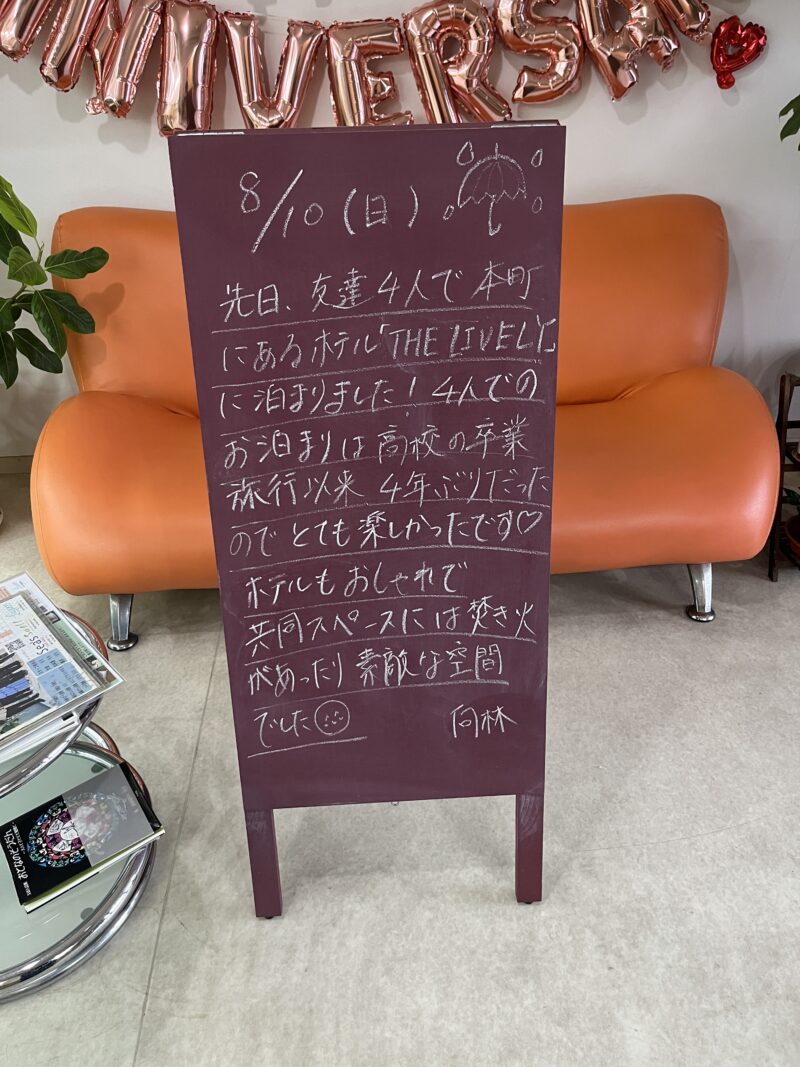 NNIVERSAR
8/10(日)
先日、友達4人で本町
にあるホテル「THE LIVELY」
に泊まりました!4人での
お泊まりは高校の卒業
旅行以来4年ぶりだった
のでとても楽しかったです♡
ホテルもおしゃれで
共同スペースには焚き火
があったり素敵な空間
でした☺
向林